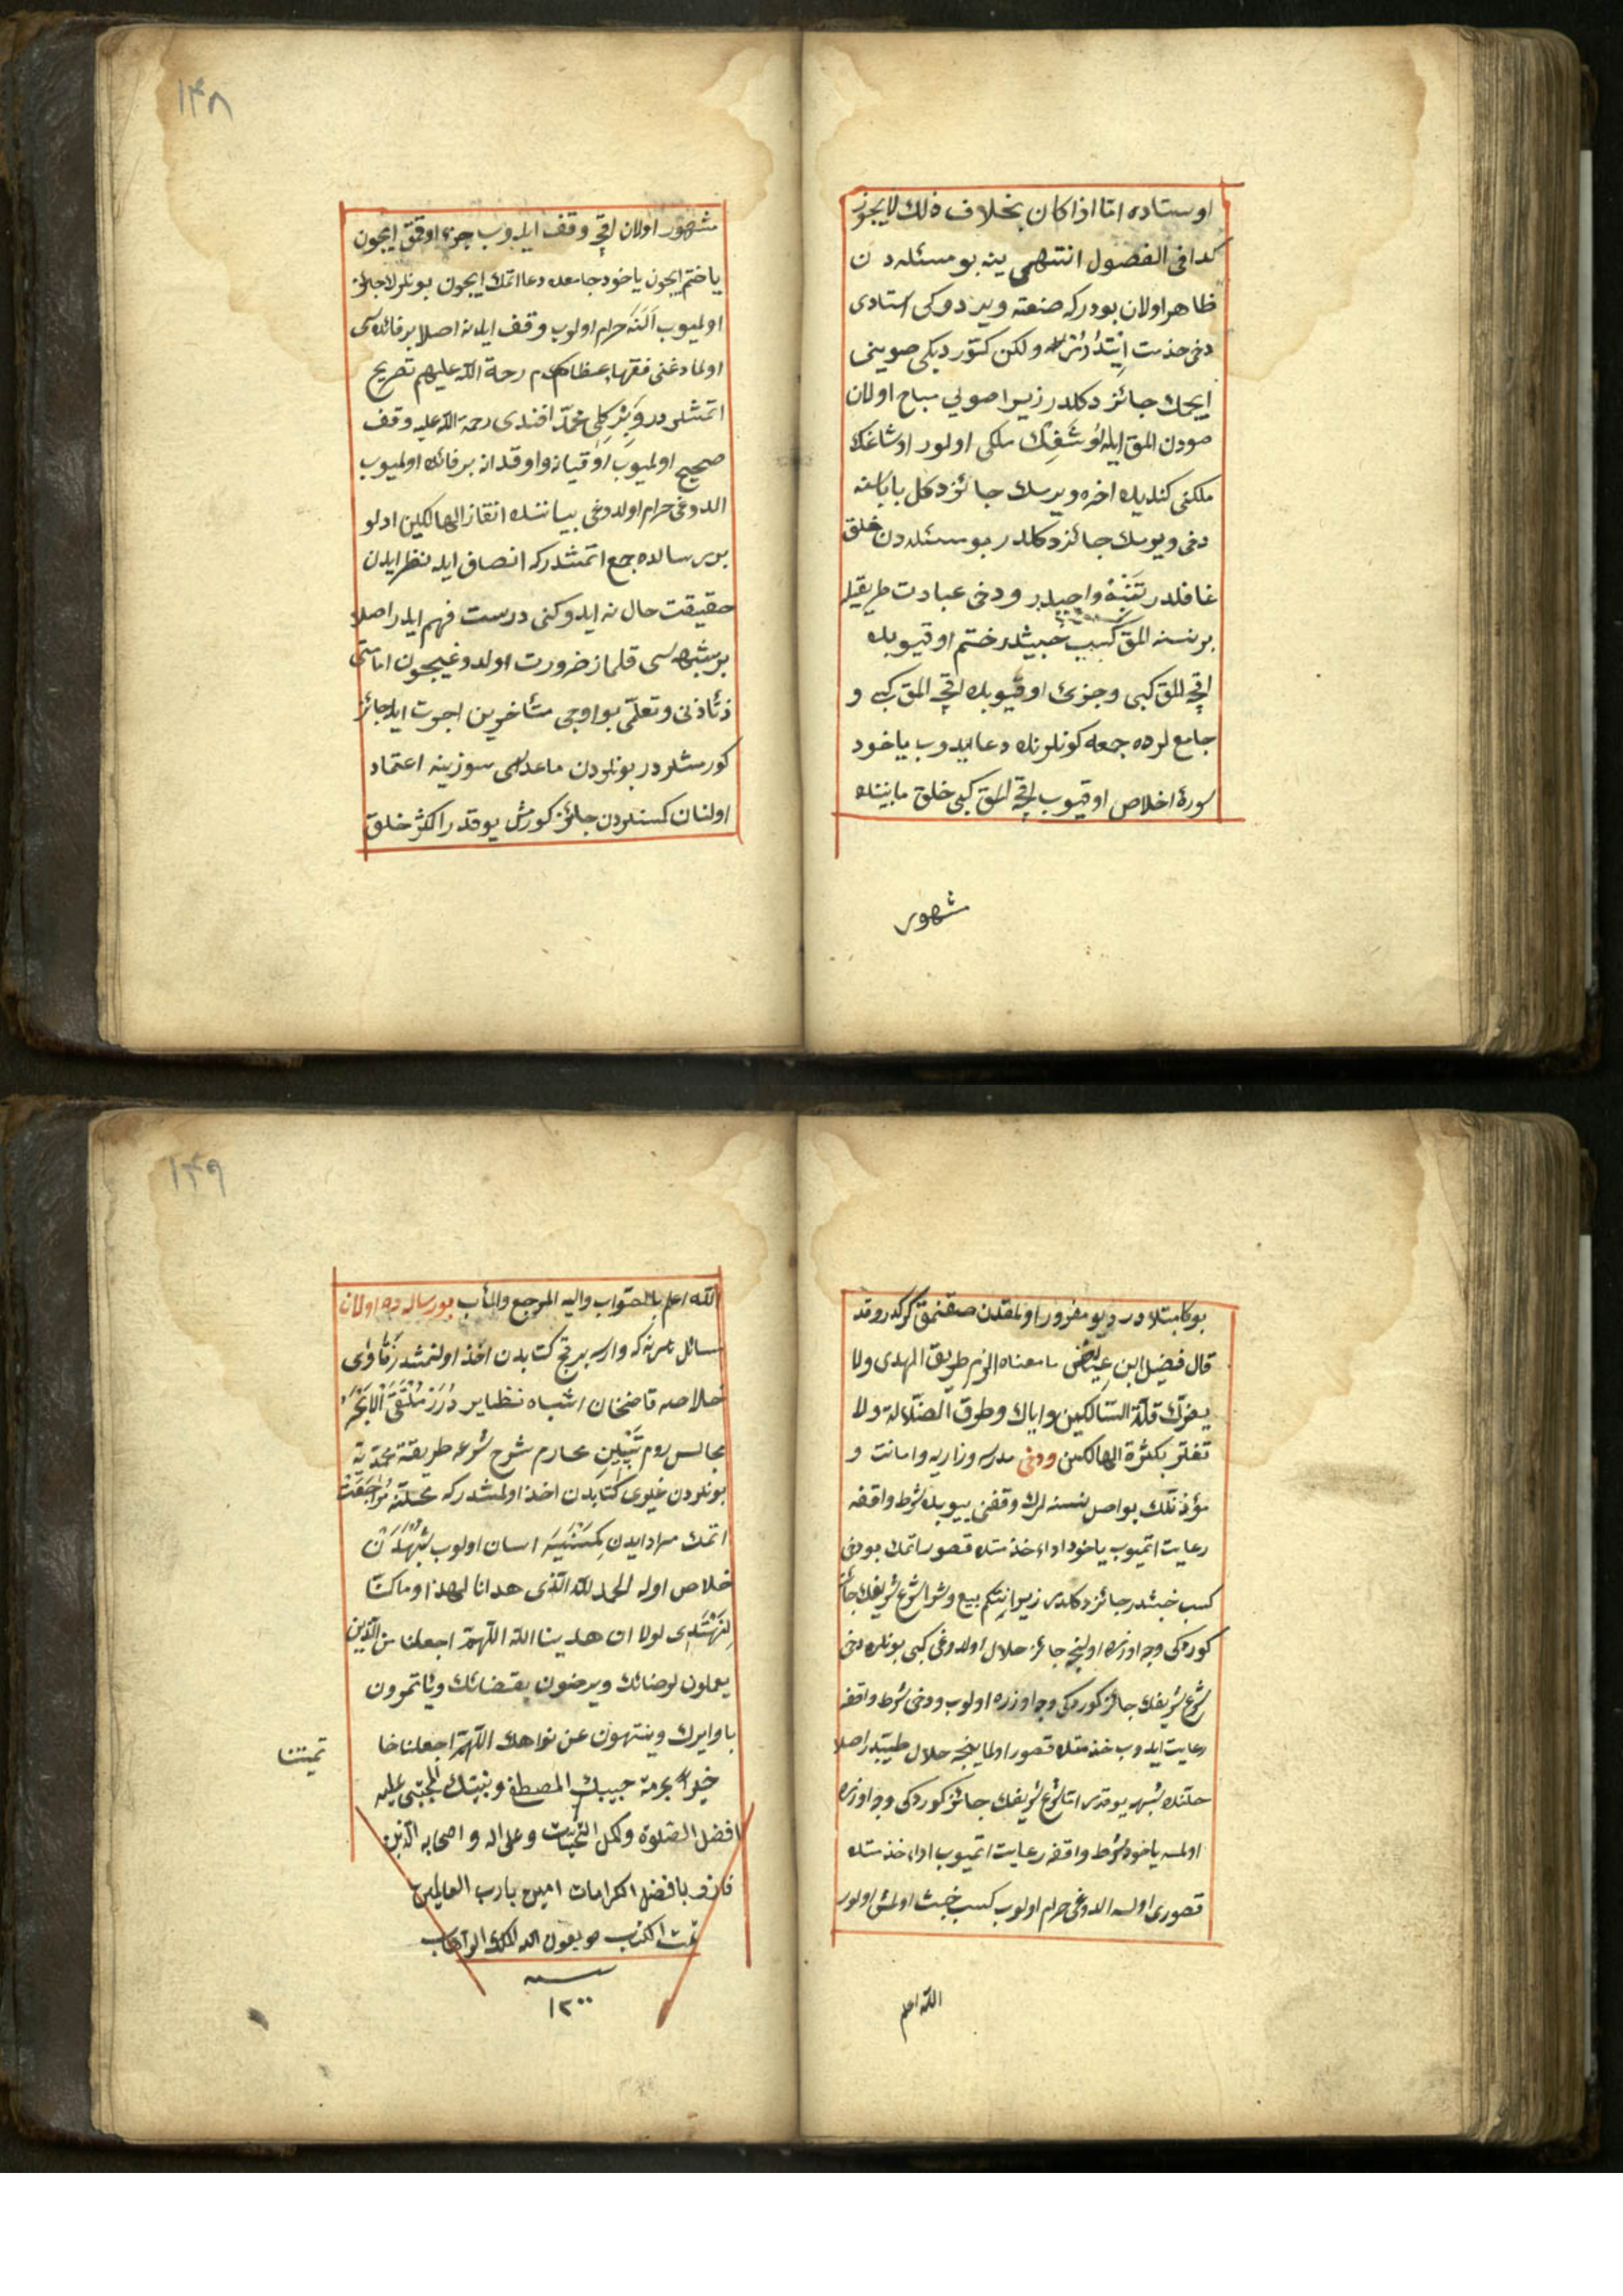 اوستاده اما اذا كان بخلاف ذلك لايجوز
كذا فى الفصول انتهى ينه بو مسئله دن
ظاهر اولان بودركه صنعته ويردوكى استادى
دخى خذمت ولكن كتوردیكى صويينى
ايچمك جائز دكلدر زيرا صولي مباح اولان
صودن المق ايله اوشغك ملكى اولور اوشاغك
ملكنى كنديله اخره ويرمك جائز دكل باباسنه
دخى ويرمك جائز دكلدر بو مسئله دن خلق
غافلدر تنبه واجبدر ودخى عبادت طريقيله
بر نسنه المق كسب خبيثدر ختم اوقيوبده
اقچه المق كبى وجزئ اوقيوبده اقچه المق كبى و
جامع لرده جمعه كونلرنده دعا ايدوب ياخود
سورۀ اخلاص اوقيوب اقچه المق كبى خلق مابيننده
مشهور
١٤٨
مشهور اولان اقچه وقف ايدوب جزء اوقمق ايچون
يا ختم ايچون ياخود جامعده دعا اتمك ايچون بونلر لا جائز
اولميوب النه حرام اولوب وقف ايدنه اصلا بر فائده سى
اولمادغنى فقهاء عظام رحمة الله عليهم تصريح
اتمشلردر وبركلى محمد افندى رحمة الله عليه وقف
صحيح اولميوب اوقيانه واوقدانه بر فائده اولميوب
الدوغى حرام اولدوغى بياننده انقاذ الهالكين ادلو
بر رساله ده جمع اتمشدركه انصاف ايله نظر ايدن
حقيقت حال نه ايدوكنى درست فهم ايدر اصلا
بر شبهه سى قلماز ضرورت اولدوغيچون امامتى
وتعلمى بو اوچى متأخرين اجرت ايله جائز
كورمشلردر بونلردن ماعداسى سوزينه اعتماد
اولنان كسنلردن جائز كورمش يوقدر اكثر خلق
بوكا مبتلادر ديو مغرور اولمقدن صقنمق كركدر وقد
قال فضيل ابن عياض ما معناه الزم طريق الهدى ولا
يضرك قلة السالكين واياك وطرق الضلالة ولا
تغتر بكثرة الهالكين ودخى مدرسه وزاويه وامامت و
مؤذنلك بو اصل نسنه لرك وقفنى ييوبده شرط واقفه
رعايت اتميوب ياخود اداء خذمتده قصور اتمك بودخى
كسب خبيثدر جائز دكلدر زيرا نتكم بيع وشرا شرع شريفك جائز
كوردكى وجه اوزره اولنجه جائز حلال اولدوغى كبى بونلر دخى
شرع شريفك جائز كوردكى وجه اوزره اولوب ودخى شرط واقفه
رعايت ايدوب خذمتده قصور اولماينجه حلال طيبدر اصلا
حلنده شبهه يوقدر اما شرع شريفك جائز كوردكى وجه اوزره
اولمسه ياخود شرط واقفه رعايت اتميوب اداء خذمتده
قصورى اولسه الدوغى حرام اولوب كسب خبيث اولمش اولور
الله اعلم
١٤٩
الله اعلم بالصواب واليه المرجع والمأب بو رساله ده اولان
مسائل هر نه كه وار سه بر قچ كتابدن اخذ اولنمشدر فتاوى
خلاصه قاضيخان اشباه نظاير درر ملتقى الابحر
مجالس روم تبيين محارم شرح شرعه طريقة محمديه
بونلردن غيرى كتابدن اخذ اولمشدركه محلنه مراجعت
اتمك مراد ايدن كمسنيه اسان اولوب شبهه دن
خلاص اوله الحمد لله الذى هدانا لهذا وما كنا
لنهتدى لولا ان هدينا الله اللهم اجعلنا من الذين
يعملون لرضائك ويرضون بقضائك ويأتمرون
باوامرك وينتهون عن نواهك اللهم اجعلنا
خيرا بحرمة حبيبك المصطفى ونبيك المجتبى عليه
افضل الصلوة واكمل التحيات وعلى اله واصحابه الذين
فازو بافضل الكرامات امين يارب العالمين
تمت الكتاب بعون الله الملك الوهاب
سنه
١٢٠٠